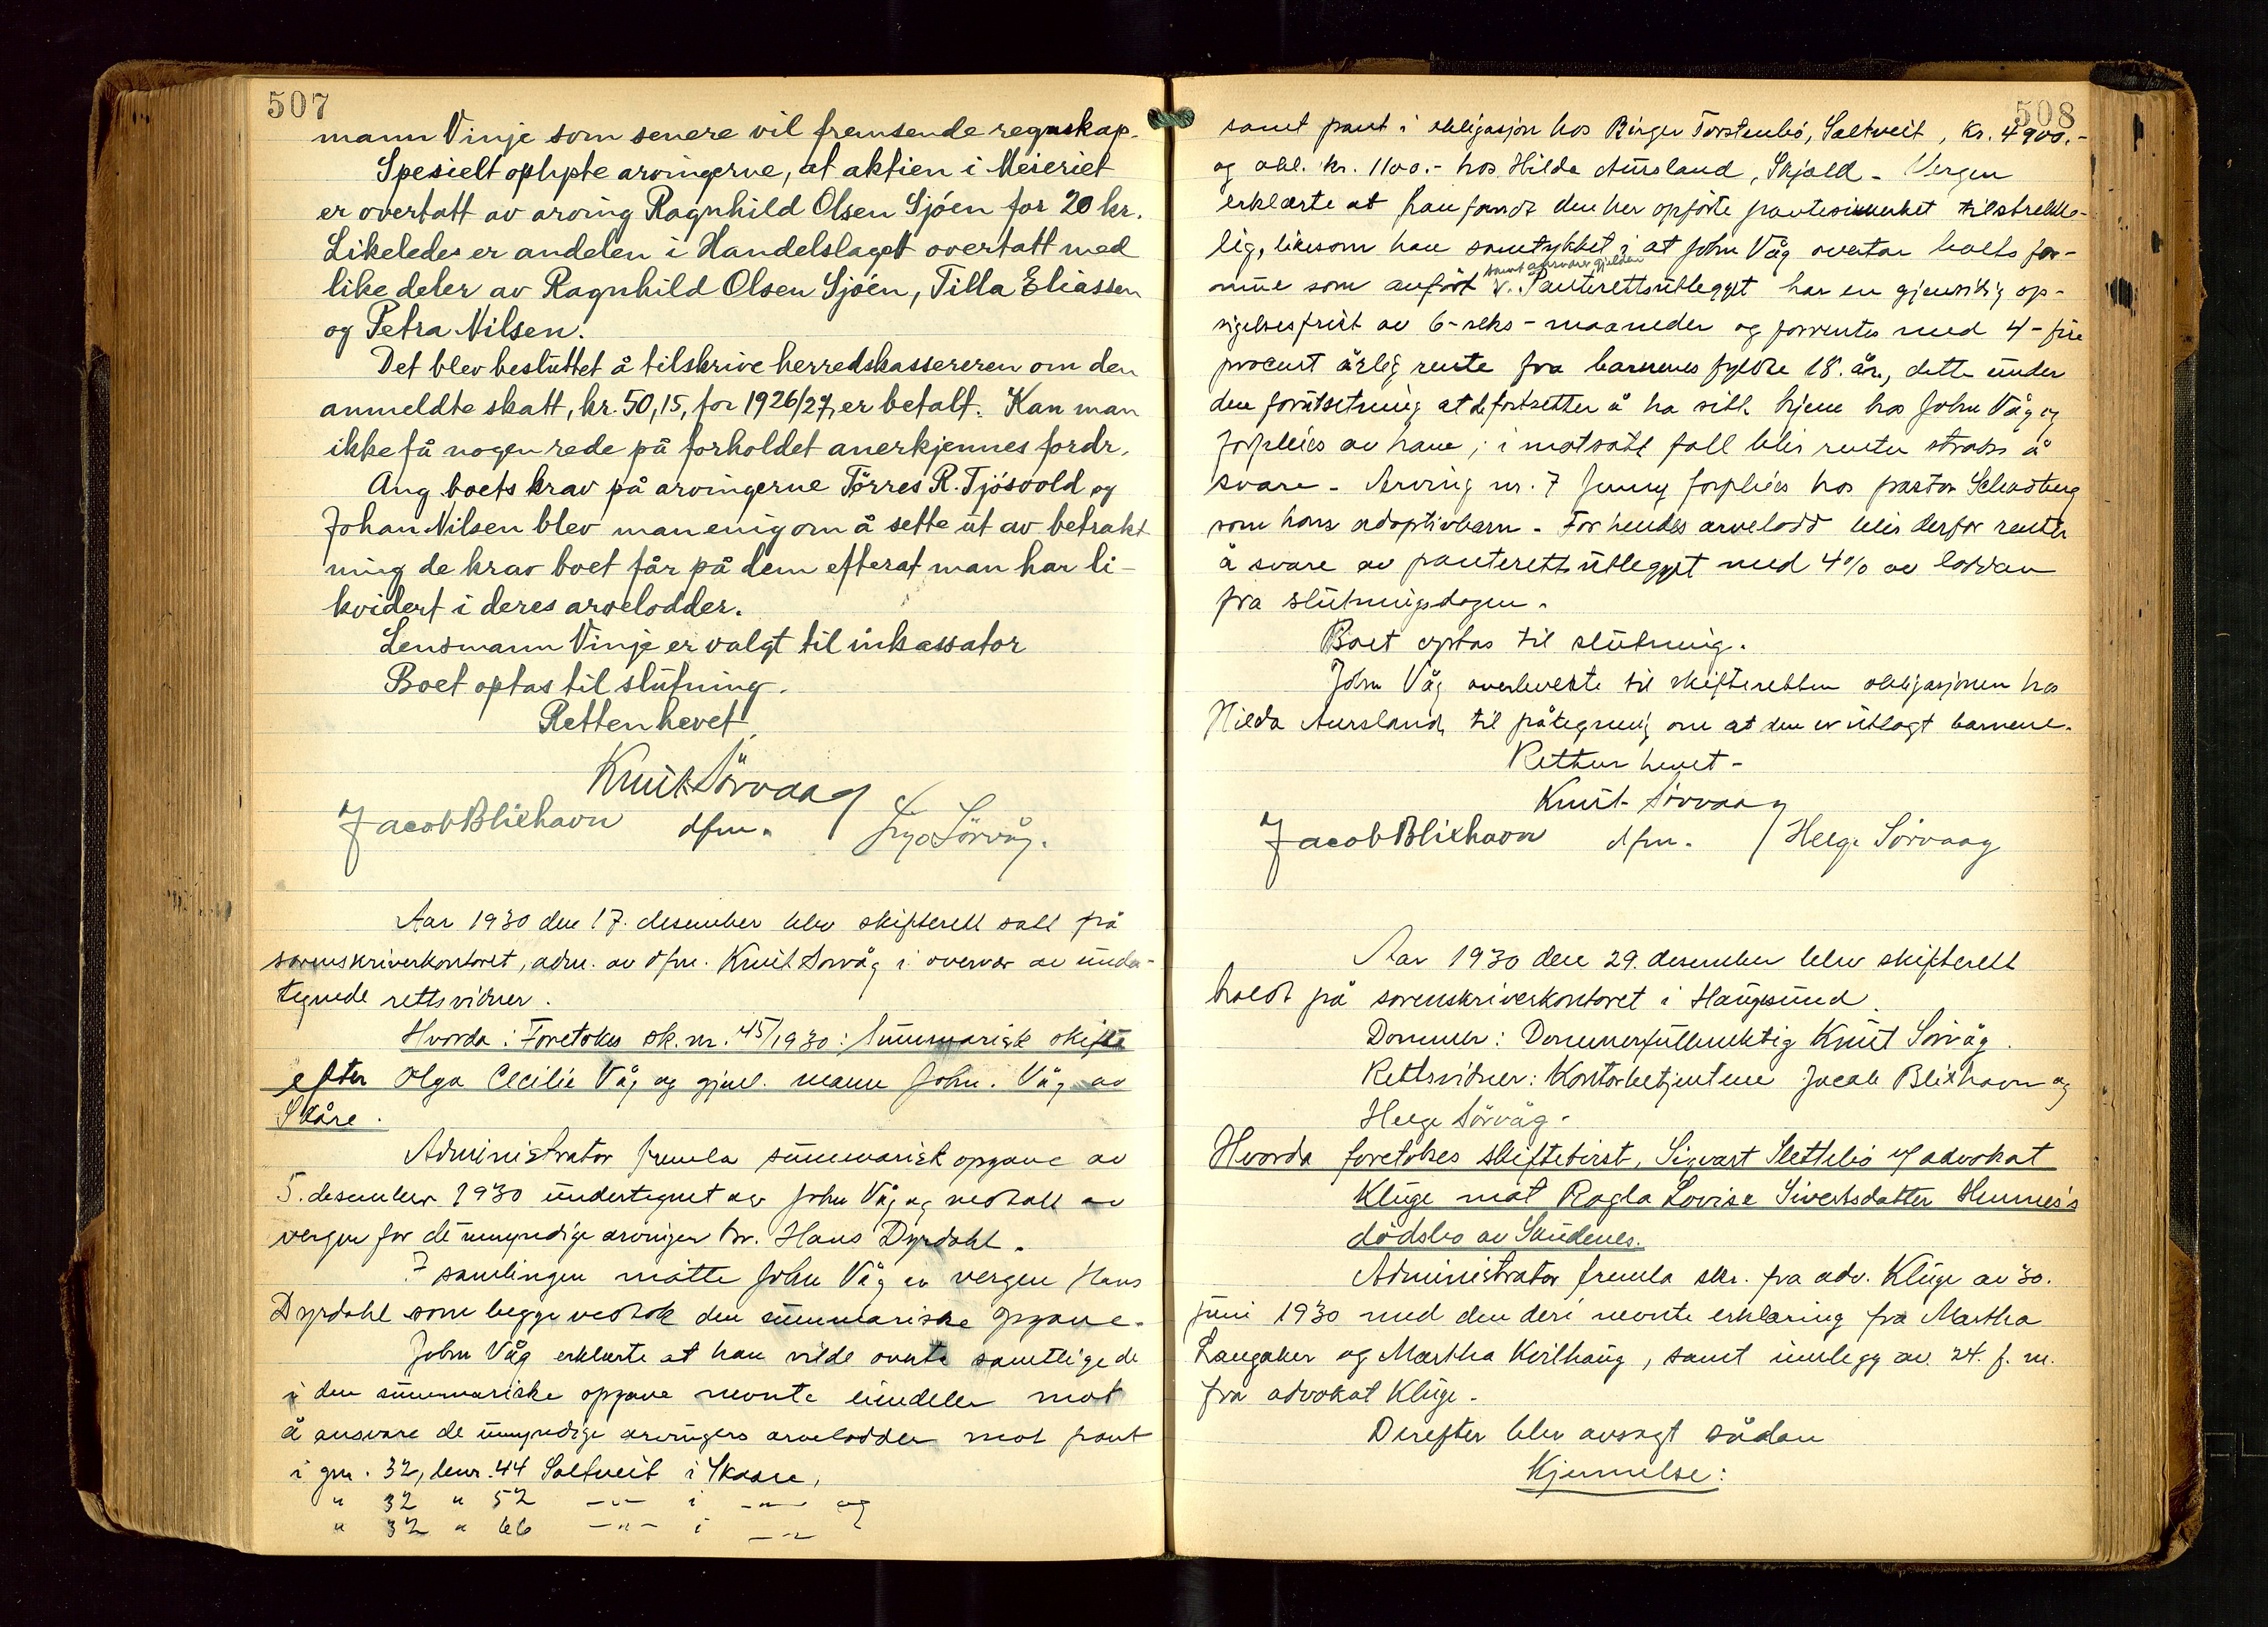 507
mann Vinje som senere vil fremsende regnskap.
Spesielt oplyste arvingerne, at aktien i Meieriet
er overtatt av arving Ragnhild Olsen Sjöen for 20 kr.
Likeledes er andelen i Handelslaget overtatt med
like deler av Ragnhild Olsen Sjöen, Tilla Eliassen
og Petra Nilsen.
Det blev besluttet å tilskrive herredskassereren om den
anmeldte skatt, kr. 50,15, for 1926/27, er betalt. Kan man
ikke få nogen rede på forholdet anerkjennes fordr.
Ang boets krav på arvingerne Törres R. Tjösvold og
Johan Nilsen blev man enig om å sette ut av betrakt
ning de krav boet får på dem efterat man har li-
kvidert i deres arvelodder.
Lensmann Vinje er valgt til inkassator
Boet optas til slutning.
Retten hevet.
Knut Sörvaag
Jacob Blixhavn dfm. Sörvåg.
Aar 1930 den 17. desember blev skifterett satt på
sorenskriverkontoret, adm. av dfm. Knut Sorvåg i overvær av under-
tegnede rettsvidner.
Hvorda: Foretokes sk. nr. 45/1930: Summarisk skifte
efter Olga Cecilie Våg og gjenl. mann John. Våg av
Skåre.
Administrator fremla summarisk opgave av
5. desember 1930 undertegnet av John Våg og vedtatt av
vergen for de umyndige arvinger hr. Hans Dyrdahl.
I samlingen mötte John Våg og vergen Hans
Dyrdahl som begge vedtok den summariske opgave.
John Våg erklærte at han vilde overta samtlige de
i den summariske opgave nevnte eiendeler mot
å ansvare de umyndige arvingers arvelodder mot pant
i gnr. 32, bnr. 44 Saltveit i Skaare,
" 32 " 52 -"- i -"- og
" 32 " 66 -"- i -"-
508
samt pant i obligasjon hos Birger Torstenbö, Saltveit, kr. 4900.-
og obl. kr. 1100.- hos Hilda Aursland, Skjold. - Vergen
erklærte at han fandt den her opförte pantesikkerhet tilstrekke-
lig, likesom han samtykket i at John Våg overtar boets for-
samt ansvarer gjelden
mue som anfört v. Panterettsutlegget har en gjensidig op-
sigelsesfrist av 6-seks-maaneder og forrentes med 4-fire
procent årlig rente fra barnenes fyldte 18. år, dette under
den forutsetning at de fortsetter å ha sitt hjem hos John Våg og
forpleies av ham; i motsatt fall blir renter straks å
svare. - Arving nr. 7 Jenny forpleies hos pastor
som hans adoptivbarn. - For hendes arvelodd blir derfor renter
å svare av panterettsutlegget med 4% av lodden
fra slutningsdagen.
Boet optas til slutning.
John Våg overleverte til skifteretten obligasjonen hos
Hilda Aursland, til påtegning om at den er utlagt barnene.
Retten hevet -
Knut Sörvaag
Jacob Blixhavn dfm. / Helge Sörvaag
Aar 1930 den 29. desember blev skifterett
holdt på sorenskriverkontoret i Haugesund.
Dommer: Dommerfullmektig Knut Sörvåg.
Rettsvidner: Kontorbetjentene Jacob Blixhavn og
Helge Sörvåg.
Hvorda foretokes skiftetvist, Sigvart Slettebö v/ advokat
Kluge mot Ragla Lovise Sivertsdatter Hemnes's
dödsbo av Skudenes.
Administrator fremla skr. fra adv. Kluge av 30.
juni 1930 med den deri nevnte erklæring fra Martha
Langaker og Martha Kvilhaug, samt innlegg av 24. f. m.
fra advokat Kluge.
Derefter blev avsagt sådan
Kjennelse: